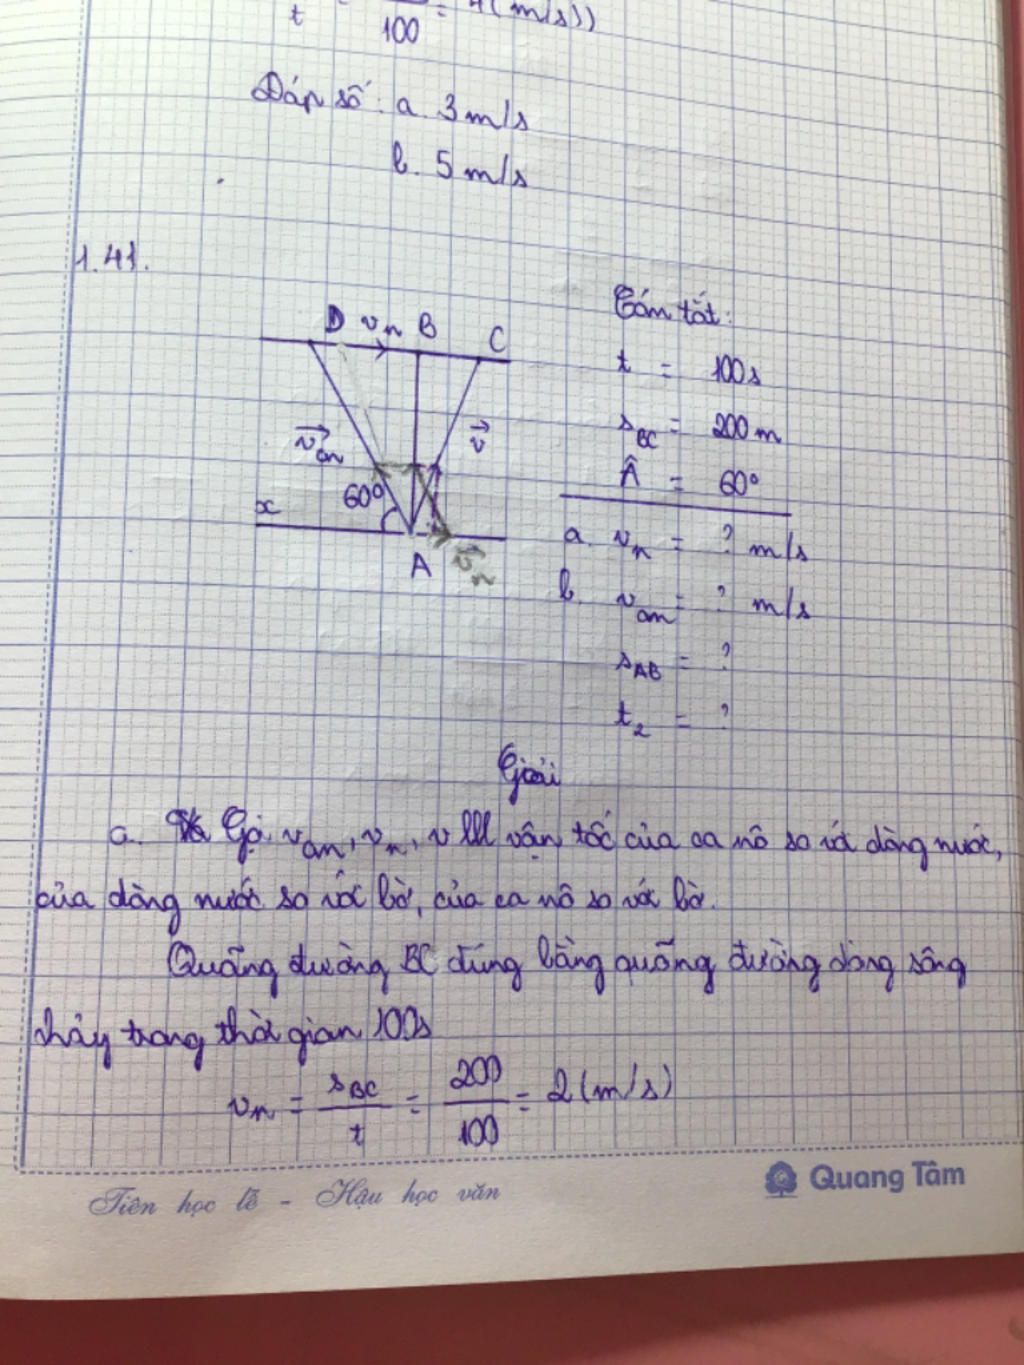 t = 100 = 4 (m/s))
Đáp số: a. 3 m/s
b. 5 m/s
1.41.
D vn B C
Tóm tắt:
t = 100s
sBC = 200 m
Â = 60°
a. vn = ? m/s
b. vcn = ? m/s
sAB = ?
t2 = ?
vcn
v
60°
x
A
vn
Giải
a. Gọi vcn, vn, v lll vận tốc của ca nô so với dòng nước,
của dòng nước so với bờ, của ca nô so với bờ.
Quãng đường BC đúng bằng quãng đường dòng sông
chảy trong thời gian 100s
vn = sBC / t = 200 / 100 = 2 (m/s)
Tiên học lễ - Hậu học văn
Quang Tâm